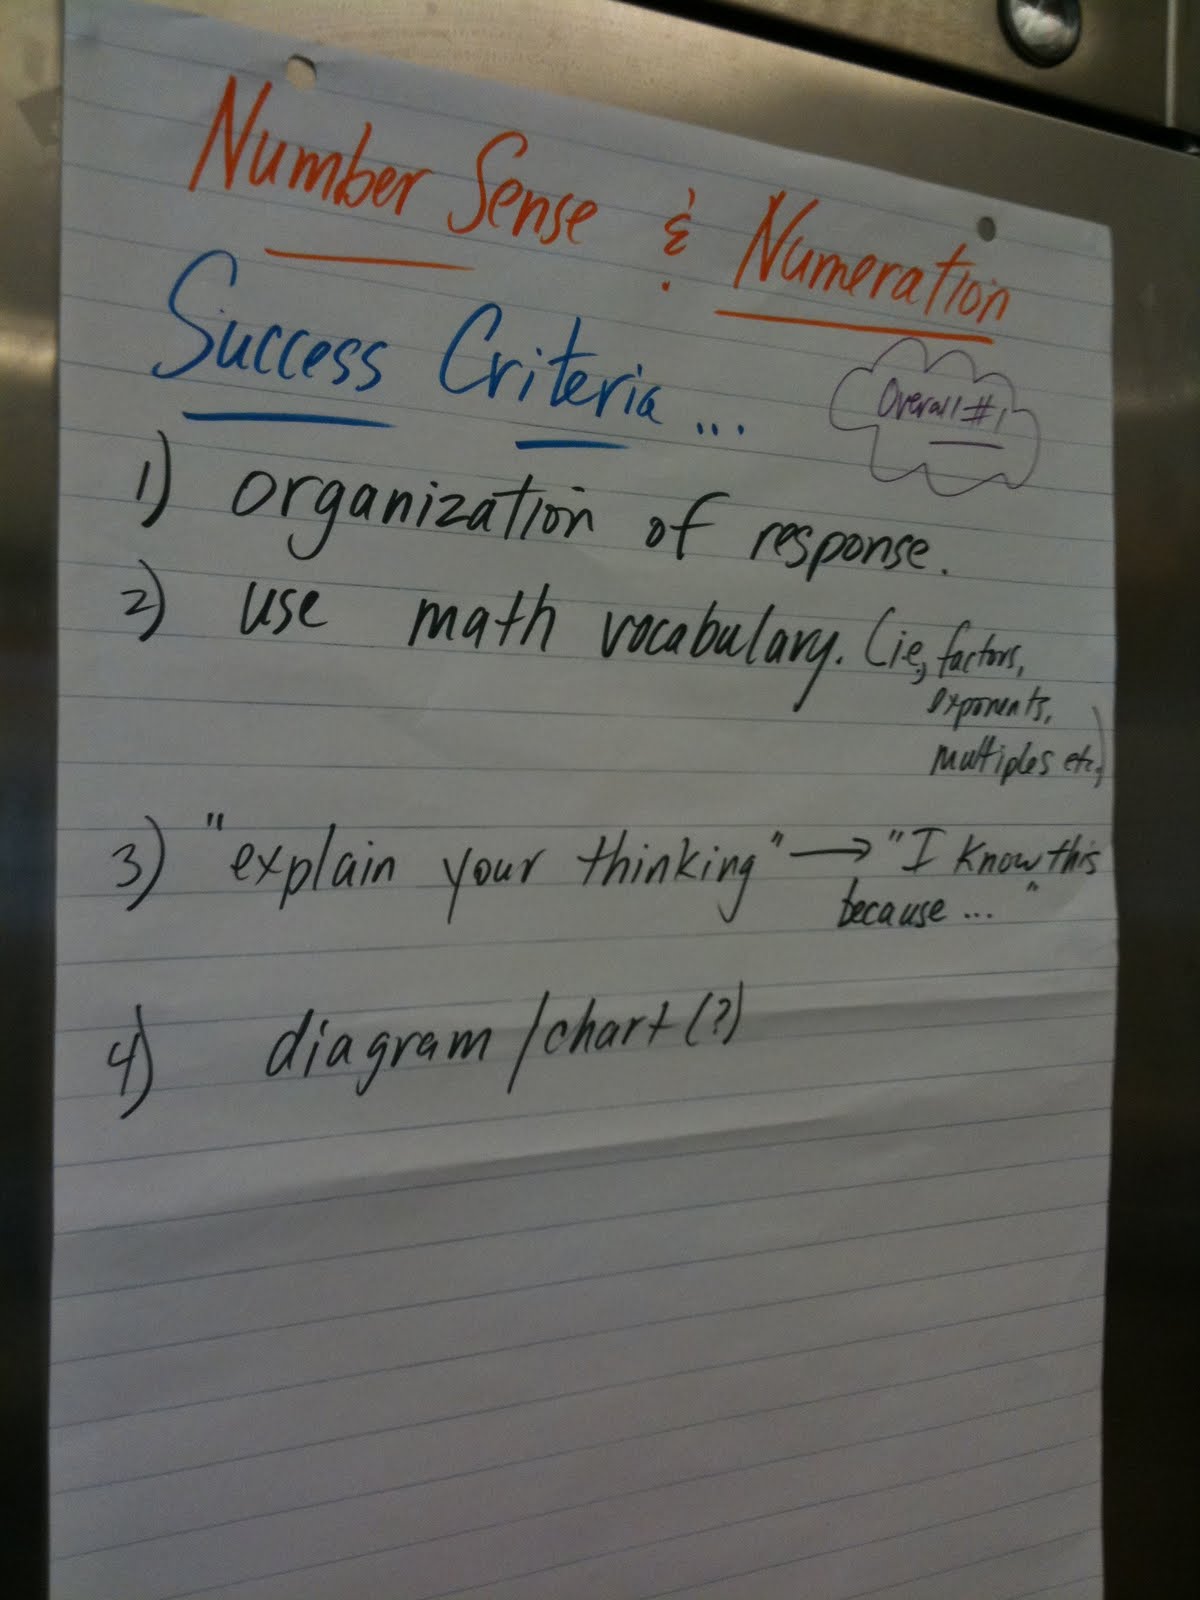 Number Sense & Numeration
Success Criteria...
Overall #1
1) organization of response.
2) use math vocabulary. (ie, factors,
exponents,
multiples etc.)
3) "explain your thinking" → "I know this
because ... "
4) diagram/chart (?)